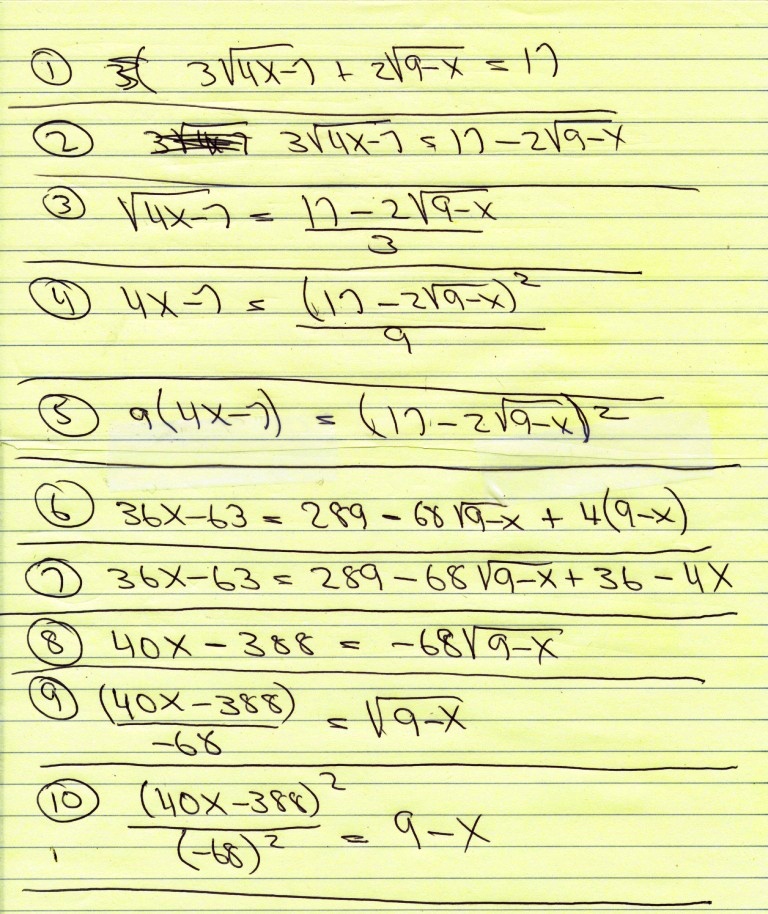 ① 3√4x-7 + 2√9-x = 17
② 3√4x-7 = 17 - 2√9-x
③ √4x-7 = (17 - 2√9-x)/3
④ 4x-7 = (17 - 2√9-x)²/9
⑤ 9(4x-7) = (17 - 2√9-x)²
⑥ 36x-63 = 289 - 68√9-x + 4(9-x)
⑦ 36x-63 = 289 - 68√9-x + 36 - 4x
⑧ 40x - 388 = -68√9-x
⑨ (40x-388)/-68 = √9-x
⑩ (40x-388)²/(-68)² = 9-x